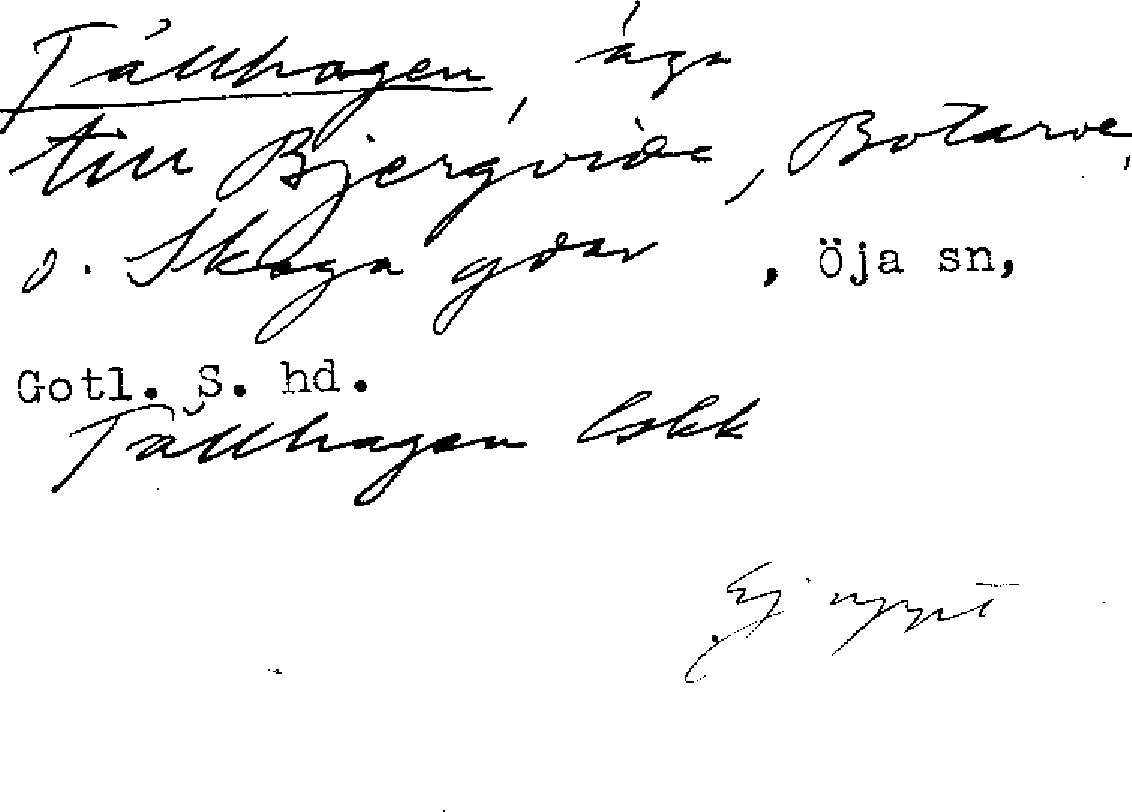 Tällhagen, äga
till Bjergvide, Botarve,
o. Skoga gdar, Öja sn,
Gotl. S. hd.
Tällhagen Eskk
Ej uppt